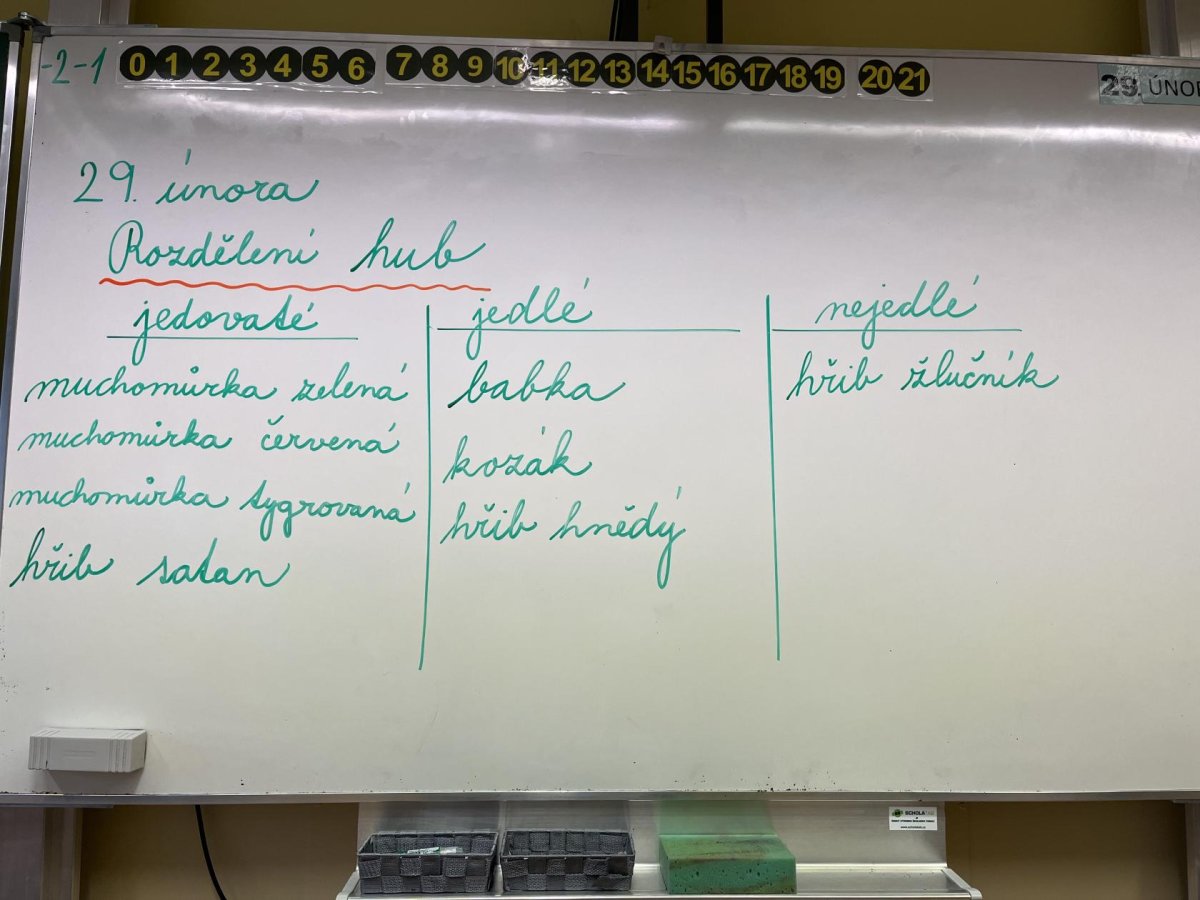 -2-1 0 1 2 3 4 5 6 7 8 9 10 11 12 13 14 15 16 17 18 19 20 21
29. ÚNOR
29. února
Rozdělení hub
jedovaté
muchomůrka zelená
muchomůrka červená
muchomůrka tygrovaná
hřib satan
jedlé
babka
kozák
hřib hnědý
nejedlé
hřib žlučník
SCHOLA